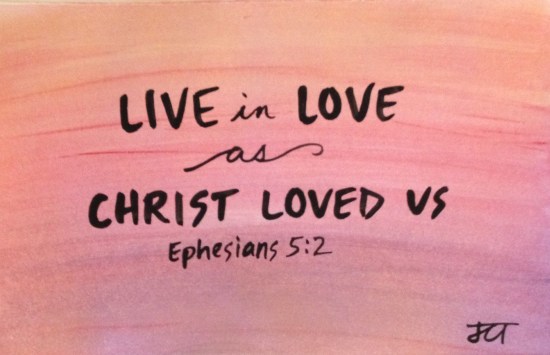 LIVE in LOVE
as
CHRIST LOVED US
Ephesians 5:2